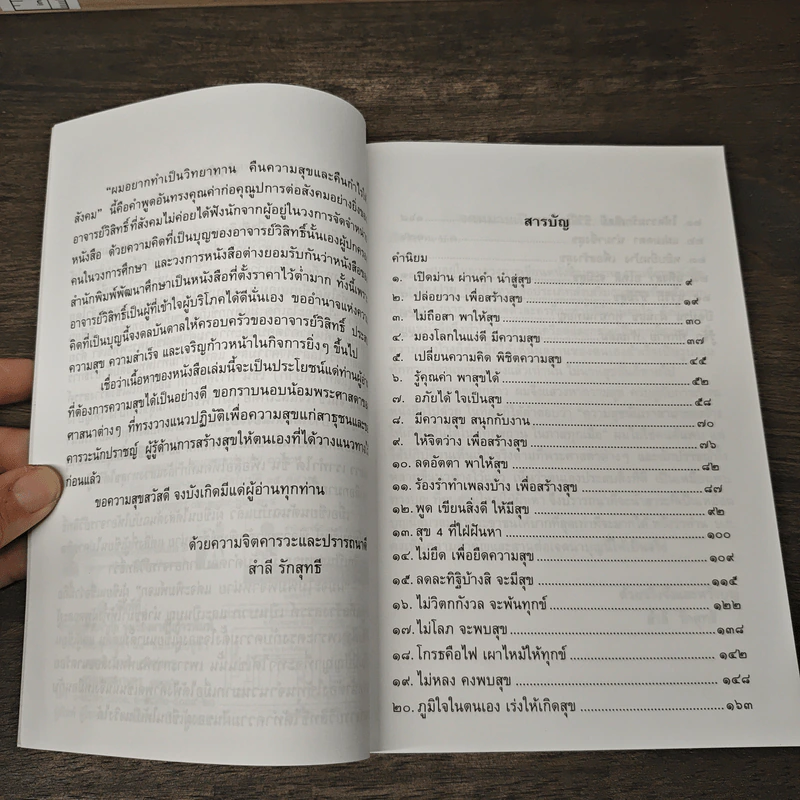 "ผมอยากทำเป็นวิทยาทาน คืนความสุขและคืนกำไรให้
สังคม" นี้คือคำพูดอันทรงคุณค่าก่อคุณูปการต่อสังคมอย่างยิ่งของ
อาจารย์วิสิทธิ์ที่สังคมไม่ค่อยได้ฟังนักจากผู้อยู่ในวงการจัดจำหน่าย
หนังสือ ด้วยความคิดที่เป็นบุญของอาจารย์วิสิทธิ์นั้นเองผู้ปกครอง
คนในวงการศึกษา และวงการหนังสือต่างยอมรับกันว่าหนังสือของ
สำนักพิมพ์พัฒนาศึกษาเป็นหนังสือที่ตั้งราคาไว้ต่ำมาก ทั้งนี้เพราะ
อาจารย์วิสิทธิ์เป็นผู้ที่เข้าใจผู้บริโภคได้ดีนั่นเอง ขออำนาจแห่งความ
คิดที่เป็นบุญนี้จงดลบันดาลให้ครอบครัวของอาจารย์วิสิทธิ์ ประสบ
ความสุข ความสำเร็จ และเจริญก้าวหน้าในกิจการยิ่งๆ ขึ้นไป
เชื่อว่าเนื้อหาของหนังสือเล่มนี้จะเป็นประโยชน์แด่ท่านผู้อ่าน
ที่ต้องการความสุขได้เป็นอย่างดี ขอกราบนอบน้อมพระศาสดาของ
ศาสนาต่างๆ ที่ทรงวางแนวปฏิบัติเพื่อความสุขแก่สาธุชนและขอ
คารวะนักปราชญ์ ผู้รู้ด้านการสร้างสุขให้ตนเองที่ได้วางแนวทางไว้
ก่อนแล้ว
ขอความสุขสวัสดี จงบังเกิดมีแด่ผู้อ่านทุกท่าน
ด้วยความจิตคารวะและปรารถนาดี
สำลี รักสุทธี
สารบัญ
คำนิยม
๑. เปิดม่าน ผ่านคำ นำสู่สุข ๙
๒. ปล่อยวาง เพื่อสร้างสุข ๑๙
๓. ไม่ถือสา พาให้สุข ๓๐
๔. มองโลกในแง่ดี มีความสุข ๓๗
๕. เปลี่ยนความคิด พิชิตความสุข ๔๕
๖. รู้คุณค่า พาสุขได้ ๕๒
๗. อภัยได้ ใจเป็นสุข ๕๘
๘. มีความสุข สนุกกับงาน ๗๐
๙. ให้จิตว่าง เพื่อสร้างสุข ๗๖
๑๐. ลดอัตตา พาให้สุข ๘๒
๑๑. ร้องรำทำเพลงบ้าง เพื่อสร้างสุข ๘๗
๑๒. พูด เขียนสิ่งดี ให้มีสุข ๙๒
๑๓. สุข 4 ที่ใฝ่ฝันหา ๑๐๐
๑๔. ไม่ยึด เพื่อยืดความสุข ๑๐๙
๑๕. ลดละทิฐิบ้างสิ จะมีสุข ๑๑๕
๑๖. ไม่วิตกกังวล จะพ้นทุกข์ ๑๒๒
๑๗. ไม่โลภ จะพบสุข ๑๓๘
๑๘. โกรธคือไฟ เผาไหม้ให้ทุกข์ ๑๔๒
๑๙. ไม่หลง คงพบสุข ๑๔๘
๒๐. ภูมิใจในตนเอง เร่งให้เกิดสุข ๑๖๓